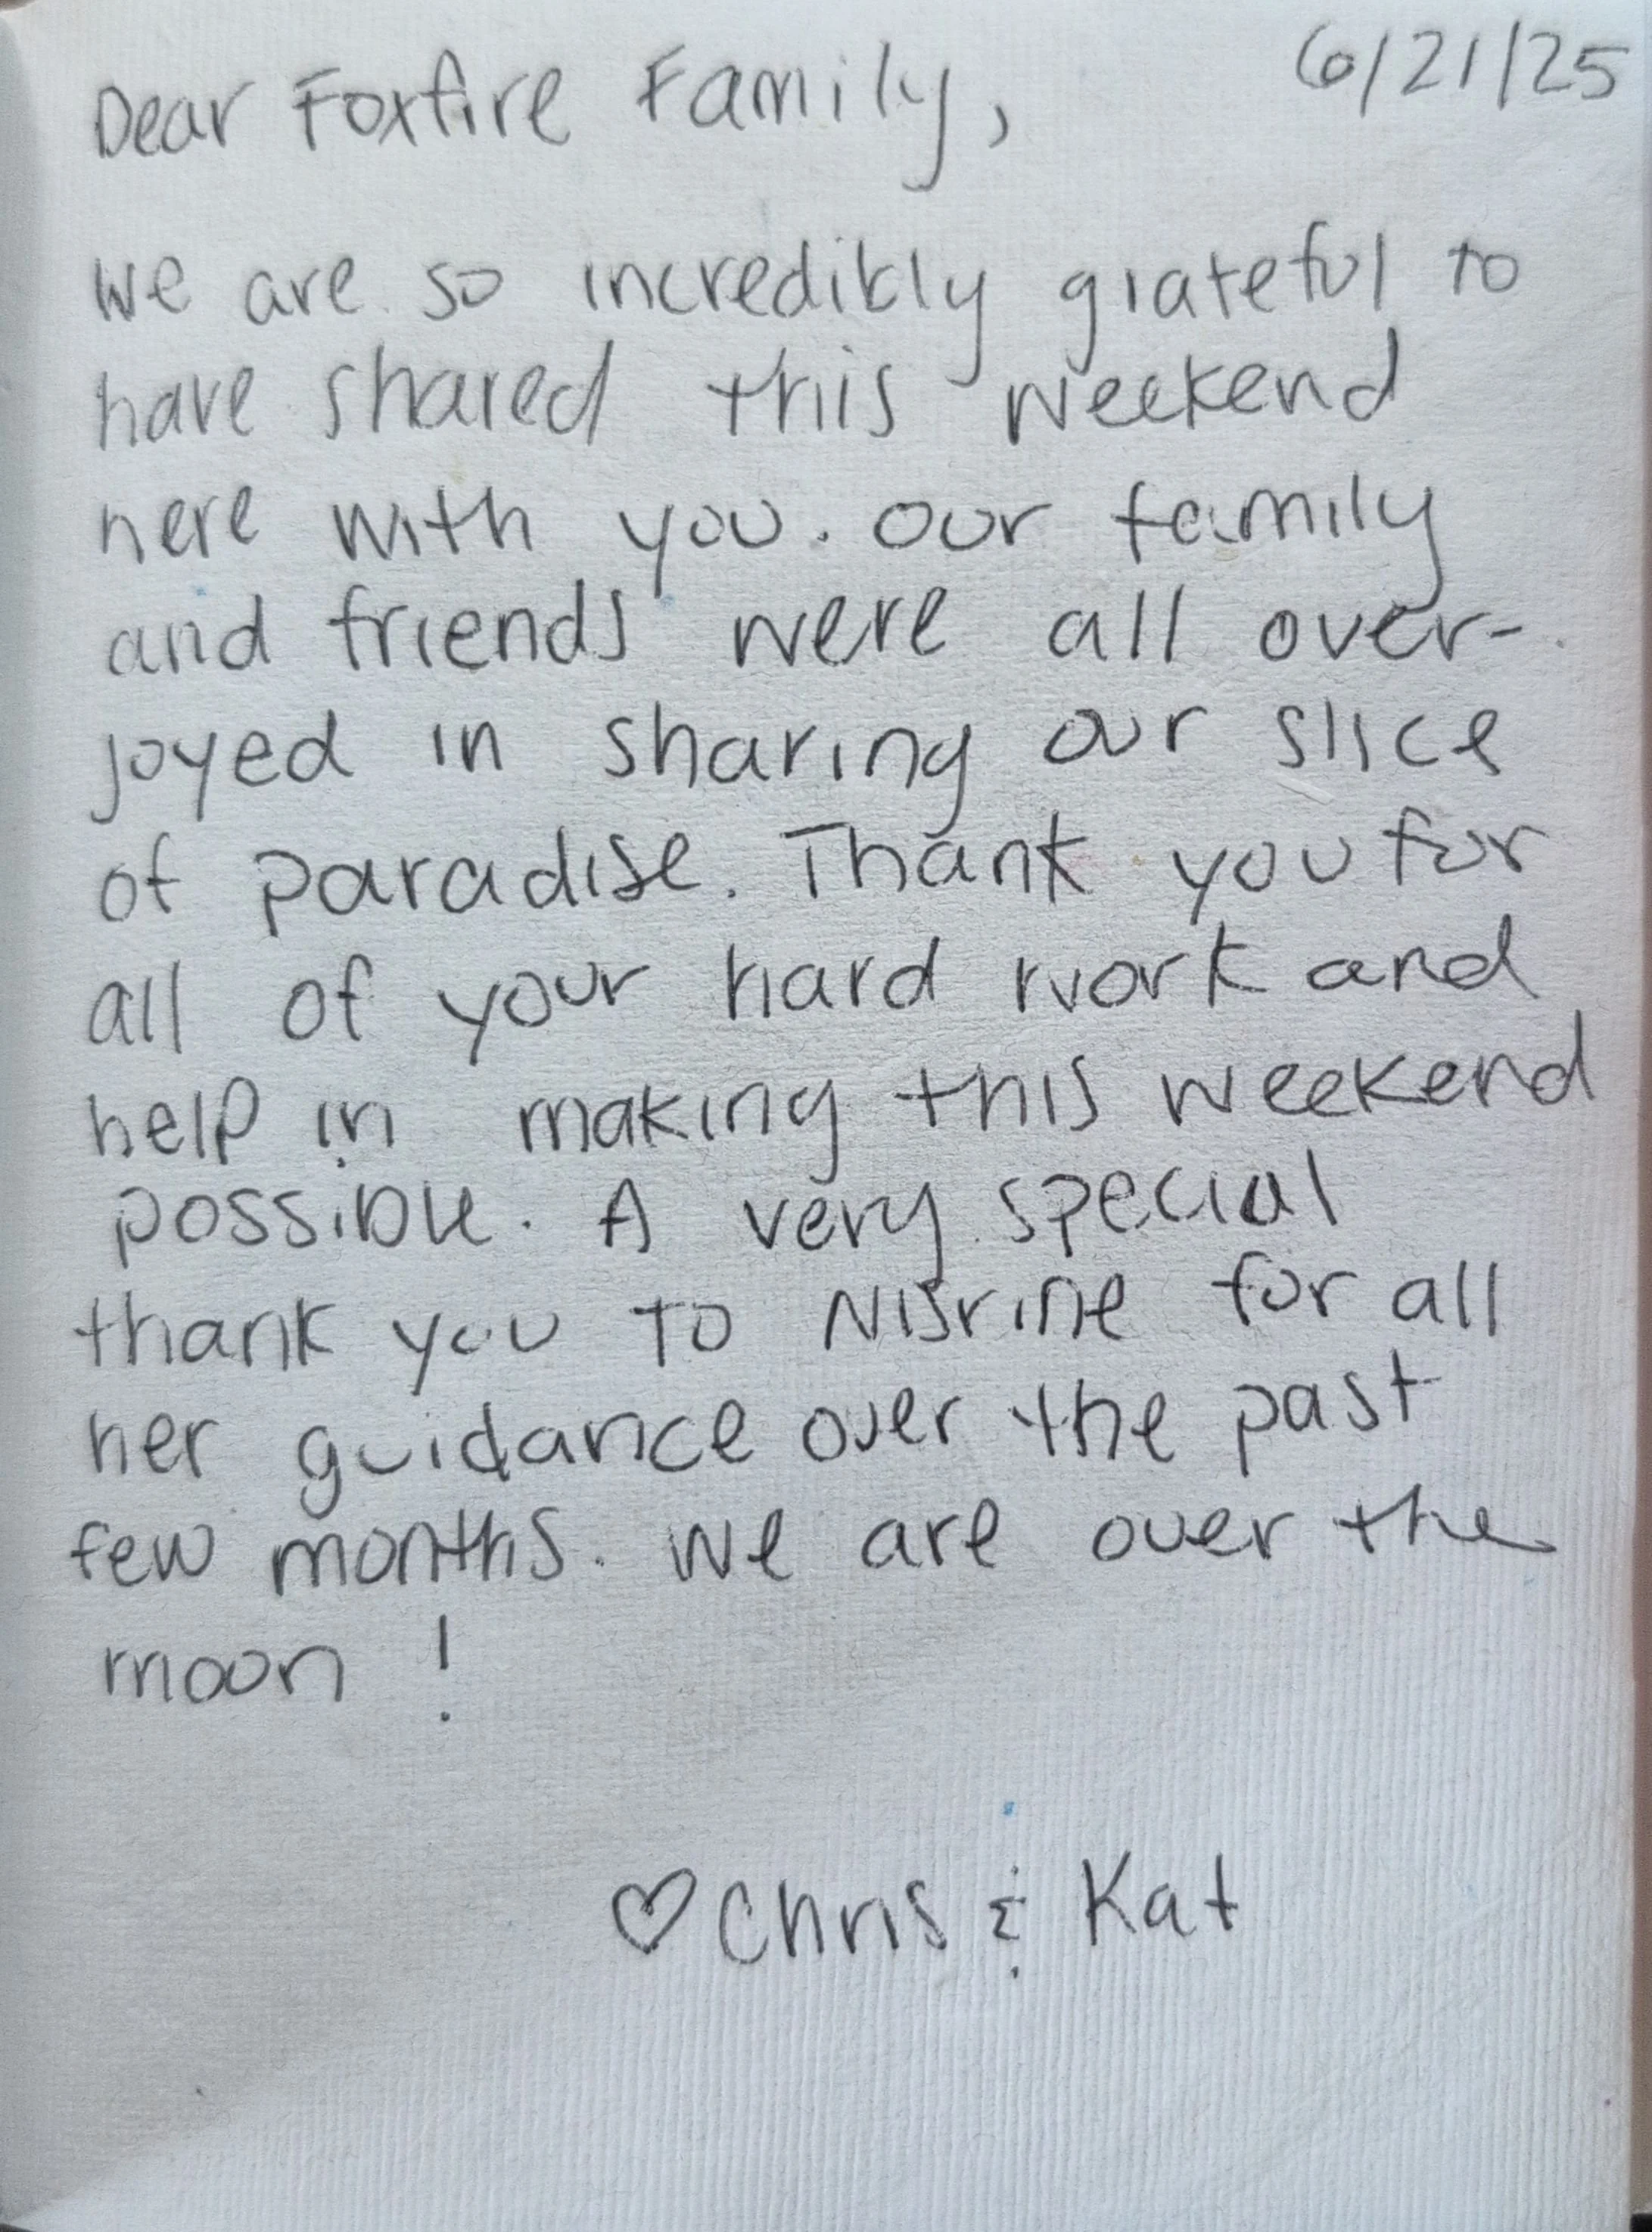 6/21/25
Dear Foxfire Family,
We are so incredibly grateful to
have shared this weekend
here with you. Our family
and friends were all over-
joyed in sharing our slice
of paradise. Thank you for
all of your hard work and
help in making this weekend
possible. A very special
thank you to Nisrine for all
her guidance over the past
few months. We are over the
moon!
♡ Chris & Kat